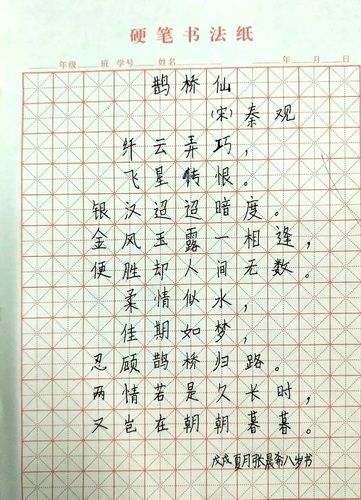 硬笔书法纸
年级 班 学号 姓名 年 月 日
鹊桥仙
(宋)秦观
纤云弄巧,
飞星传恨。
银汉迢迢暗度。
金风玉露一相逢,
便胜却人间无数。
柔情似水,
佳期如梦,
忍顾鹊桥归路。
两情若是久长时,
又岂在朝朝暮暮。
戊戌夏月张晨希八岁书